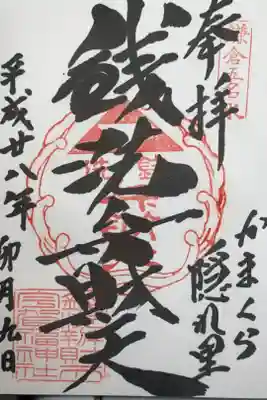 鎌倉五名水
奉拝
かまくら
隠れ里
銭洗弁財天
平成廿八年
卯月九日